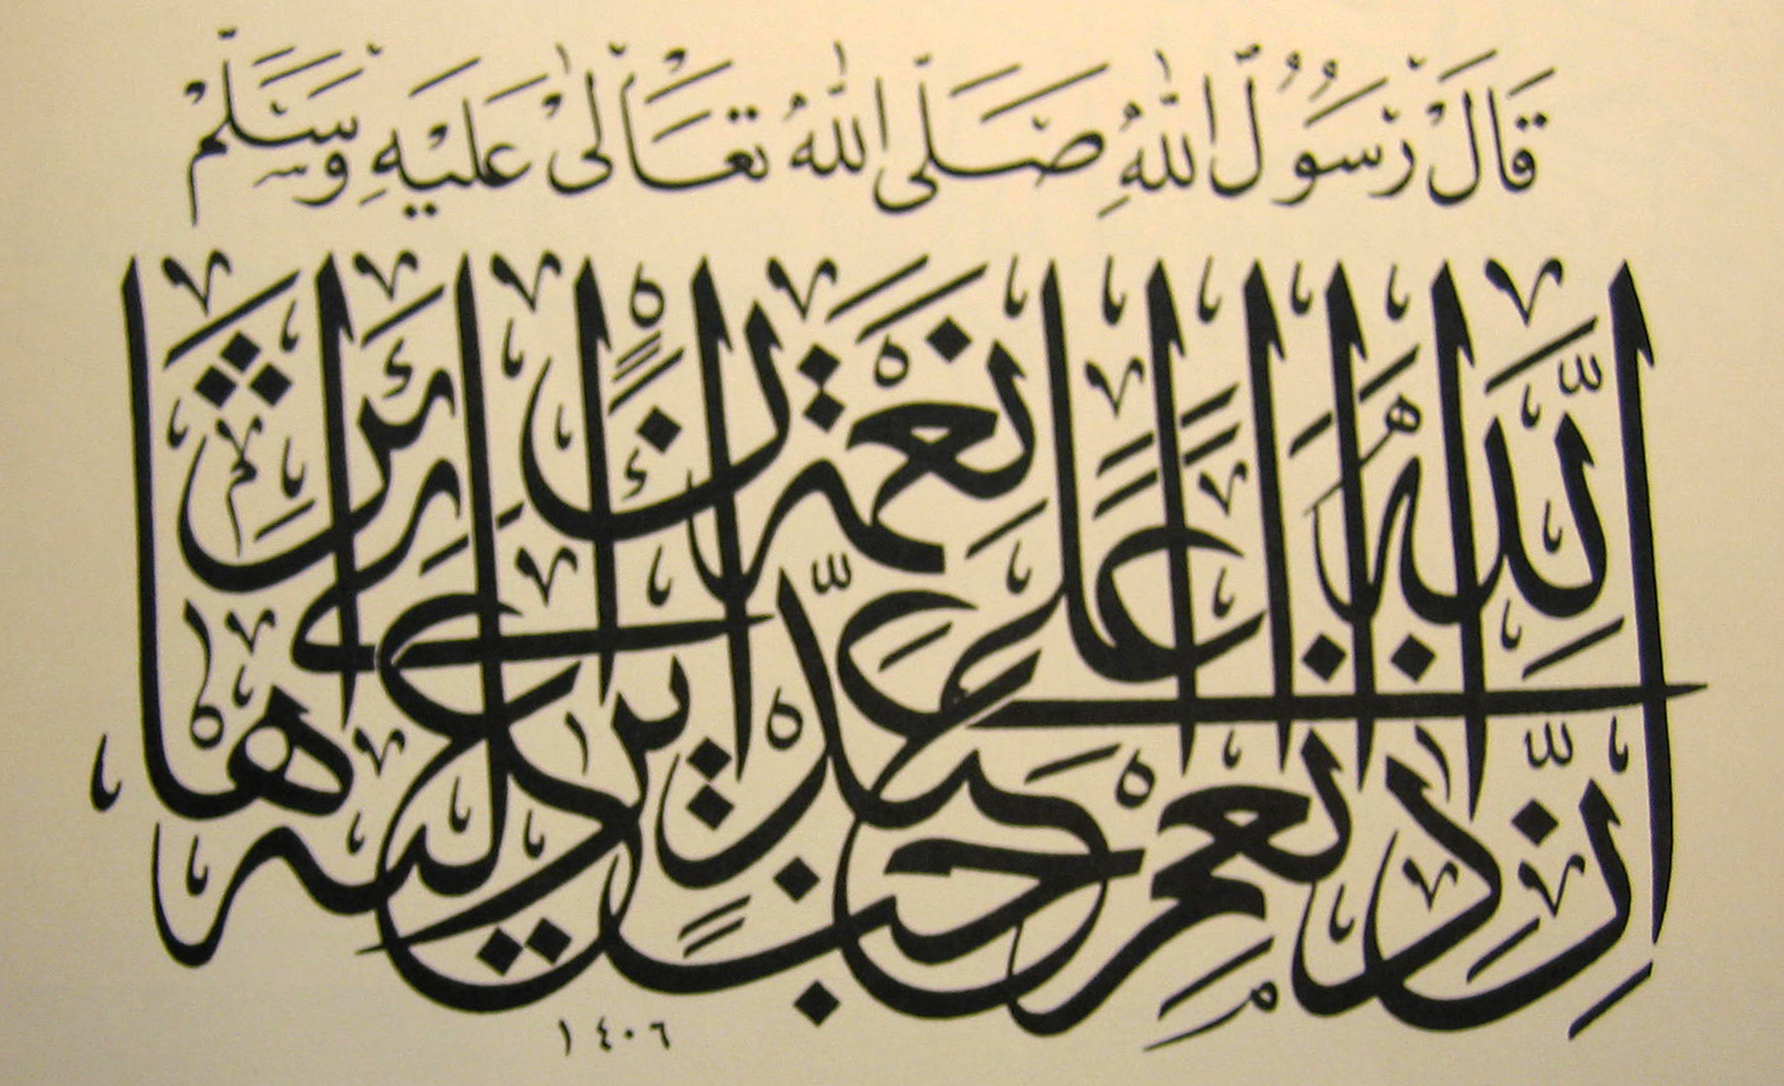 قَالَ رَسُولُ اللهِ صَلَّى اللهُ تَعَالَىٰ عَلَيْهِ وَسَلَّمْ
إِنَّ اللهَ إِذَا أَنْعَمَ عَلَى عَبْدٍ نِعْمَةً يُحِبُّ أَنْ يَرَى أَثَرَهَا عَلَيْهِ
١٤٠٦